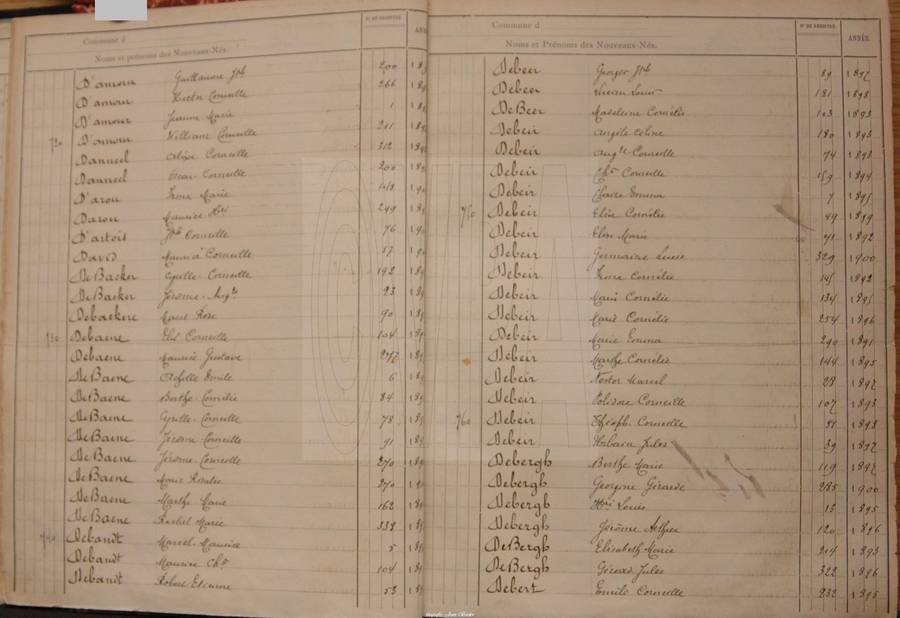 Commune d
Noms et prénoms des Nouveaux-Nés.
Nº DE REGISTRE.
D'amour Guillaume Jph 200 189
D'amour Hector Corneille 266 189
D'amour Jeanne Marie 1 189
720 D'amour William Corneille 211 189
Danneel Alix Corneille 312 189
Danneel Oscar Corneille 200 189
D'arou Irma Marie 148
Darou Maurice Hri 249 189
D'artois Jph Corneille 76
David Maurice Corneille 57
De Backer Cyrille Corneille 192 189
De Backer Jérôme Augte 23 189
Debackere Marie Rose 90 189
730 Debaene Elie Corneille 104 189
Debaene Maurice Gustave 189
De Baene Achille Emile 6 189
De Baene Berthe Cornélie 84 189
De Baene Cyrille Corneille 78 189
De Baene Jérôme Corneille 91 189
De Baene Jérôme Corneille 270 189
De Baene Marie Rosalie 270
De Baene Marthe Marie 162 189
De Baene Rachel Marie 338 189
740 Debandt Marcel Maurice 5 189
Debandt Maurice Chs 104 189
Debandt Robert Etienne 53 189
Commune d
Noms et Prénoms des Nouveaux-Nés.
Nº DE REGISTRE.
ANNÉE.
Debeer Georges Jph 89 1892
Debeer Lucien Louis 181 1898
De Beer Madeleine Cornélie 103 1893
Debeir Angèle Celine 180 1893
Debeir Augte Corneille 74 1893
Debeir Chs Corneille 159 1894
Debeir Claire Emma 7 1895
750 Debeir Elise Cornélie 49 1899
Debeir Elise Marie 41 1892
Debeir Germaine Lucie 329 1900
Debeir Irma Cornélie 145 1892
Debeir Marie Cornélie 134 1895
Debeir Marie Cornélie 254 1896
Debeir Marie Emma 290 1891
Debeir Marthe Cornélie 144 1895
Debeir Nestor Marcel 28 1892
Debeir Polidore Corneille 107 1893
760 Debeir Théoph. Corneille 1898
Debeir Urbain Jules 39 1892
Debergh Berthe Marie 119 1892
Debergh Georgine Gérarde 285 1900
Debergh Hri Louis 13 1895
Debergh Jérôme Arthur 120 1896
De Bergh Elisabeth Marie 214 1893
De Bergh Gérard Jules 322 1896
Debert Emile Corneille 232 1895